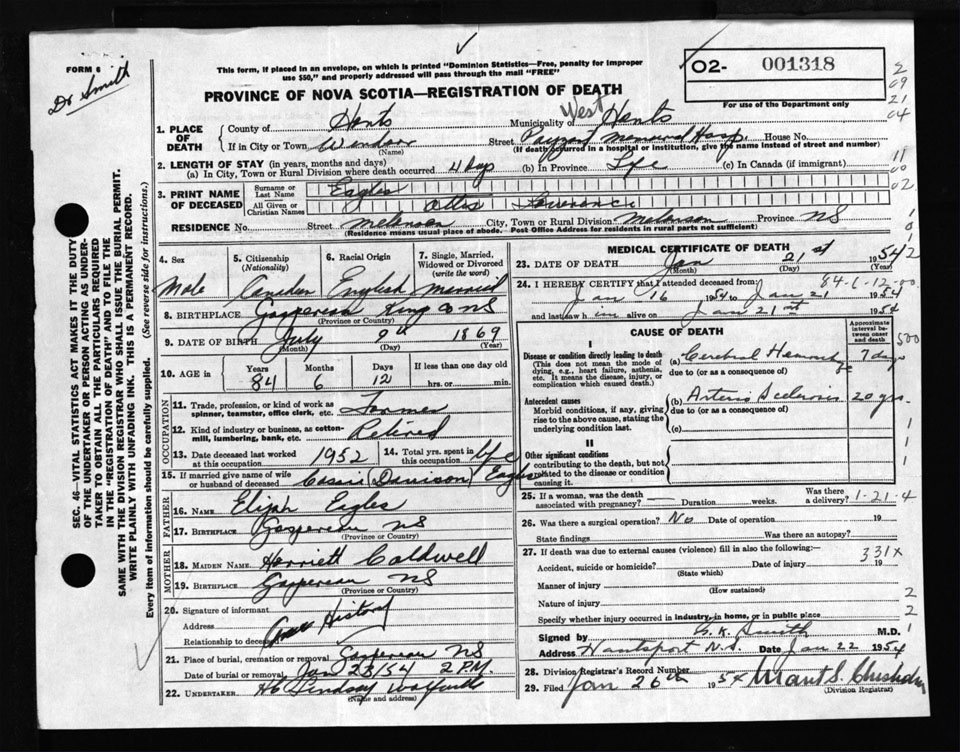 FORM 6
Dr Smith
This form, if placed in an envelope, on which is printed "Dominion Statistics—Free, penalty for improper
use $50," and properly addressed will pass through the mail "FREE"
PROVINCE OF NOVA SCOTIA—REGISTRATION OF DEATH
O2- 001318
For use of the Department only
2
09
21
04
1. PLACE OF DEATH
County of Hants Municipality of West Hants
If in City or Town Windsor Street Payzant Memorial Hosp. House No.
(Name) (If death occurred in a hospital or institution, give the name instead of street and number)
2. LENGTH OF STAY (in years, months and days)
(a) In City, Town or Rural Division where death occurred 4 days (b) In Province Life (c) In Canada (if immigrant)
11
00
02
3. PRINT NAME OF DECEASED
Surname or Last Name Eagles
All Given or Christian Names Otis Lawrence
RESIDENCE No. Street City, Town or Rural Division Province NS
(Residence means usual place of abode. Post Office Address for residents in rural parts not sufficient)
SEC. 46—VITAL STATISTICS ACT MAKES IT THE DUTY
OF THE UNDERTAKER OR PERSON ACTING AS UNDER-
TAKER TO OBTAIN ALL THE PARTICULARS REQUIRED
IN THE "REGISTRATION OF DEATH" AND TO FILE THE
SAME WITH THE DIVISION REGISTRAR WHO SHALL ISSUE THE BURIAL PERMIT.
WRITE PLAINLY WITH UNFADING INK. THIS IS A PERMANENT RECORD.
Every item of information should be carefully supplied. (See reverse side for instructions.)
4. Sex 5. Citizenship 6. Racial Origin 7. Single, Married,
(Nationality) Widowed or Divorced
(write the word)
Male Canadian English Married
8. BIRTHPLACE Gaspereau Kings Co NS
(Province or Country)
9. DATE OF BIRTH July 9th 1869
(Month) (Day) (Year)
10. AGE in Years Months Days If less than one day old
84 6 12 hrs. or min.
OCCUPATION
11. Trade, profession, or kind of work as
spinner, teamster, office clerk, etc. Farmer
12. Kind of industry or business, as cotton-
mill, lumbering, bank, etc. Retired
13. Date deceased last worked
at this occupation 1952
14. Total yrs. spent in
this occupation life
15. If married give name of wife
or husband of deceased Cassie (Davison) Eagles
FATHER
16. NAME Elijah Eagles
17. BIRTHPLACE Gaspereau NS
(Province or Country)
MOTHER
18. MAIDEN NAME Harriett Caldwell
19. BIRTHPLACE Gaspereau NS
(Province or Country)
20. Signature of informant
Address
Relationship to deceased
History
21. Place of burial, cremation or removal Gaspereau NS
Date of burial or removal Jan 23/54 2 P.M.
22. UNDERTAKER Lindsay Wolfville
MEDICAL CERTIFICATE OF DEATH
23. DATE OF DEATH Jan 21st 1954
(Month) (Day) (Year)
24. I HEREBY CERTIFY that I attended deceased from: 84-6-12-00
Jan 16 1954 to Jan 21 1954
and last saw him alive on Jan 21st 1954
CAUSE OF DEATH
Approximate interval between onset and death
500
I
Disease or condition directly leading to death
(This does not mean the mode of
dying, e.g., heart failure, asthenia,
etc. It means the disease, injury, or
complication which caused death.)
(a) Cerebral Hemorrhage 7 days
due to (or as a consequence of)
Antecedent causes
Morbid conditions, if any, giving
rise to the above cause, stating the
underlying condition last.
(b) Arterio Sclerosis 20 yrs.
due to (or as a consequence of)
(c)
II
Other significant conditions
contributing to the death, but not
related to the disease or condition
causing it.
25. If a woman, was the death Was there
associated with pregnancy? Duration weeks. a delivery? 1-21-4
26. Was there a surgical operation? No Date of operation 19
State findings Was there an autopsy?
27. If death was due to external causes (violence) fill in also the following:— 331X
Accident, suicide or homicide? Date of injury 19
(State which)
Manner of injury
(How sustained)
Nature of injury
Specify whether injury occurred in industry, in home, or in public place
Signed by G. K. Smith M.D.
Address Hantsport N.S. Date Jan 22 1954
28. Division Registrar's Record Number
29. Filed Jan 26th 1954 Chisholm
(Division Registrar)